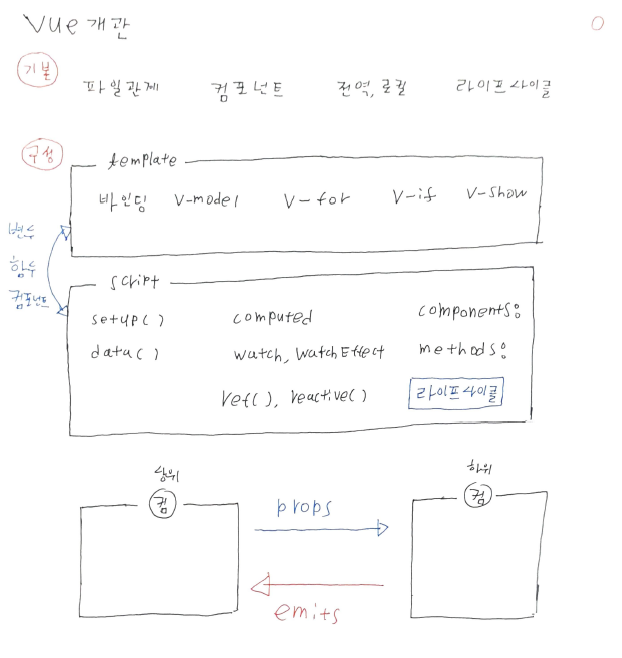 Vue 개관
기본
파일관계 컴포넌트 전역, 로컬 라이프사이클
구성
template
바인딩 V-model V-for V-if V-show
변수
함수
컴포넌트
script
setup() computed components:
data() watch, watchEffect methods:
ref(), reactive() 라이프사이클
상위 하위
컴 컴
props
emits